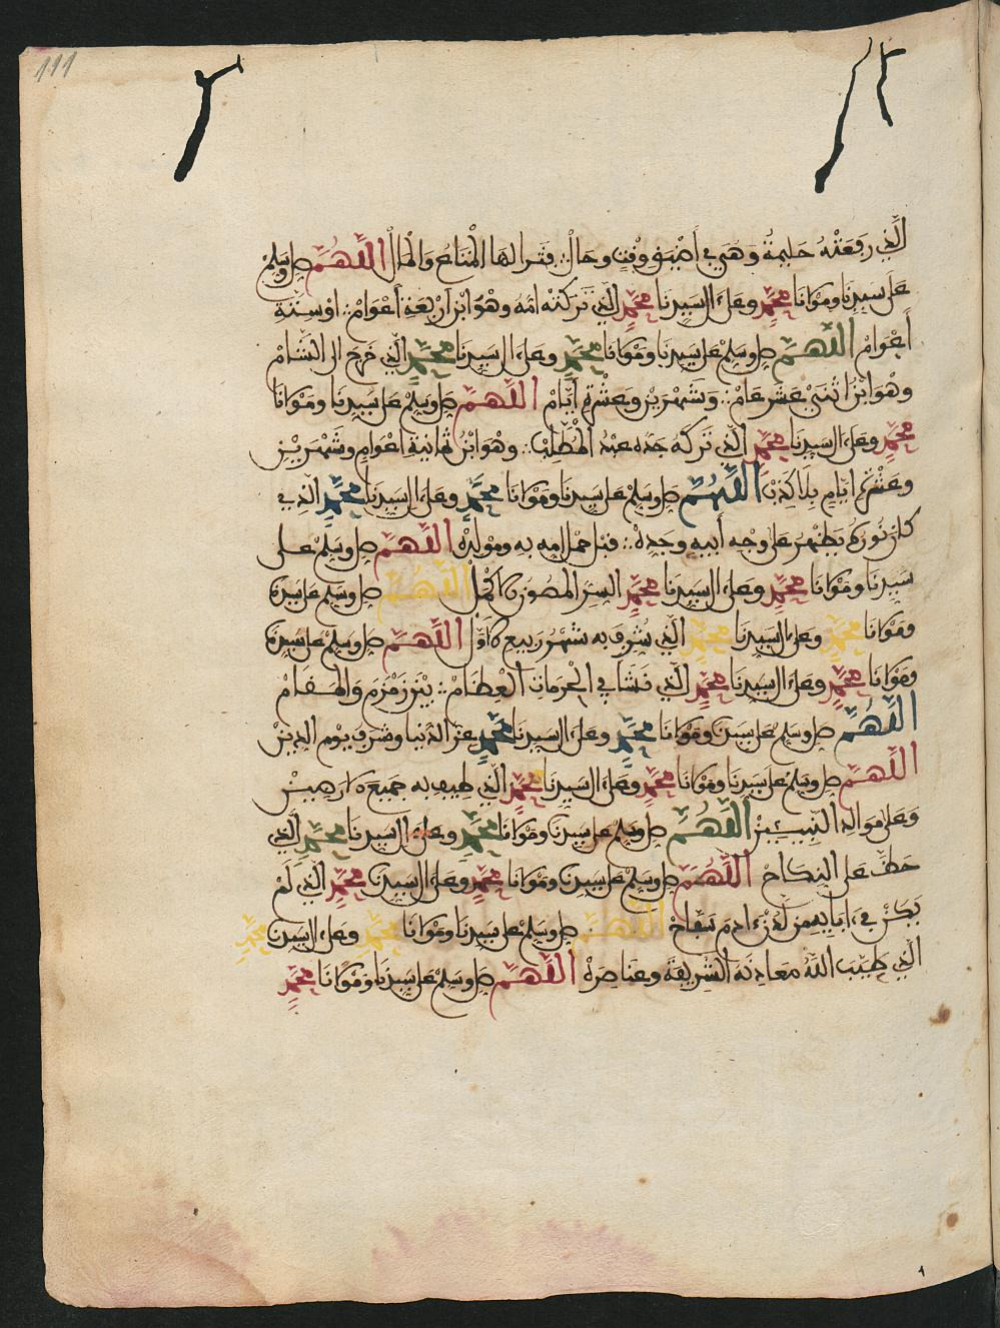 111
الذي رفعته حليمة وهي في أضيق وقت وحال فترا لها المتاع والمال اللهم صل وسلم
على سيدنا ومولانا محمد وعلى ال سيدنا محمد الذي تركته امه وهو ابن اربعة أعوام او ستة
أعوام اللهم صل وسلم على سيدنا ومولانا محمد وعلى ال سيدنا محمد الذي خرج الى الشام
وهو ابن اثني عشر عام وشهرين وعشرة أيام اللهم صل وسلم على سيدنا ومولانا
محمد وعلى ال سيدنا محمد الذي تركه جده عبد المطلب وهو ابن ثمانية اعوام وشهرين
وعشرة ايام بلا كذب اللهم صل وسلم على سيدنا ومولانا محمد وعلى ال سيدنا محمد الذي
كان نوره يظهر على وجه أبيه وجده قبل حمل امه به ومولده اللهم صل وسلم على
سيدنا ومولانا محمد وعلى ال سيدنا محمد السر المصون الاكمل اللهم صل وسلم على سيدنا
ومولانا محمد وعلى ال سيدنا محمد الذي شرف به شهر ربيع الاول اللهم صل وسلم على سيدنا
ومولانا محمد وعلى ال سيدنا محمد الذي نشا في الحرمات العظام بين زمزم والمقام
اللهم صل وسلم على سيدنا ومولانا محمد وعلى ال سيدنا محمد عز الدنيا وشرف يوم الدين
اللهم صل وسلم على سيدنا ومولانا محمد وعلى ال سيدنا محمد الذي طيف به جميع الارضين
وعلى موالد النبيين اللهم صل وسلم على سيدنا ومولانا محمد وعلى ال سيدنا محمد الذي
حظ على النكاح اللهم صل وسلم على سيدنا ومولانا محمد وعلى ال سيدنا محمد الذي لم
يكن في ءابايه من لدن ءادم سفاح اللهم صل وسلم على سيدنا ومولانا محمد وعلى ال سيدنا محمد
الذي طيب الله معادنه الشريفة وعناصره اللهم صل وسلم على سيدنا ومولانا محمد